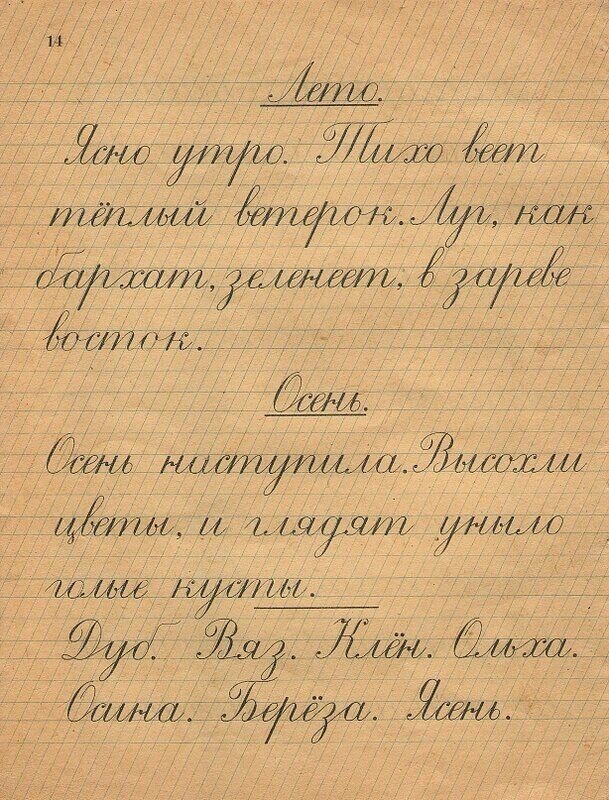 14
Лето.
Ясно утро. Тихо веет
тёплый ветерок. Луг, как
бархат, зеленеет, в зареве
восток.
Осень.
Осень наступила. Высохли
цветы, и глядят уныло
голые кусты.
Дуб. Вяз. Клён. Ольха.
Осина. Берёза. Ясень.